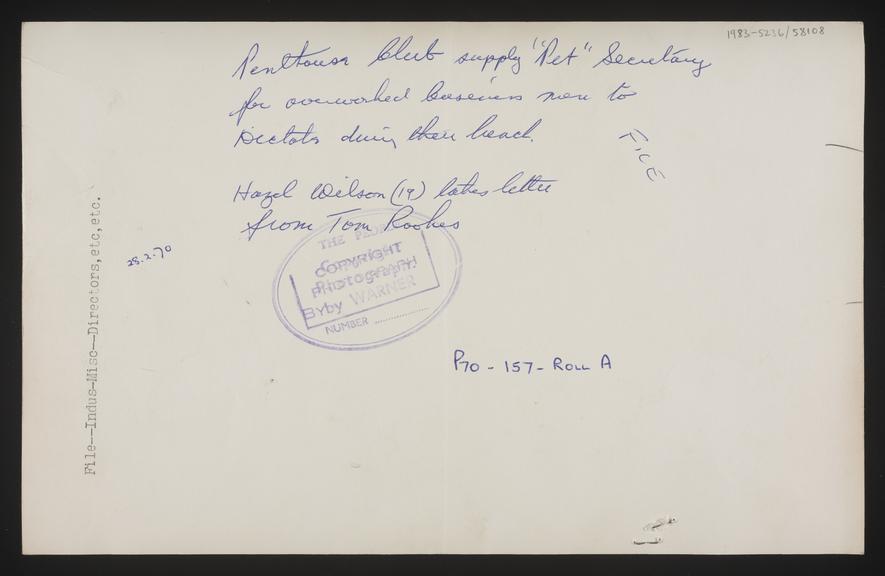 1983-5236/58108
Penthouse Club supply "Pet" Secretary
for overworked business men to
Dictate during their lunch.
FILE
Hazel Wilson (19) takes letter
from Tom Rookes
28.2.70
THE PEOPLE
COPYRIGHT
PHOTOGRAPH
By WARNER
NUMBER
P70 - 157 - ROLL A
File--Indus-Misc--Directors,etc,etc.